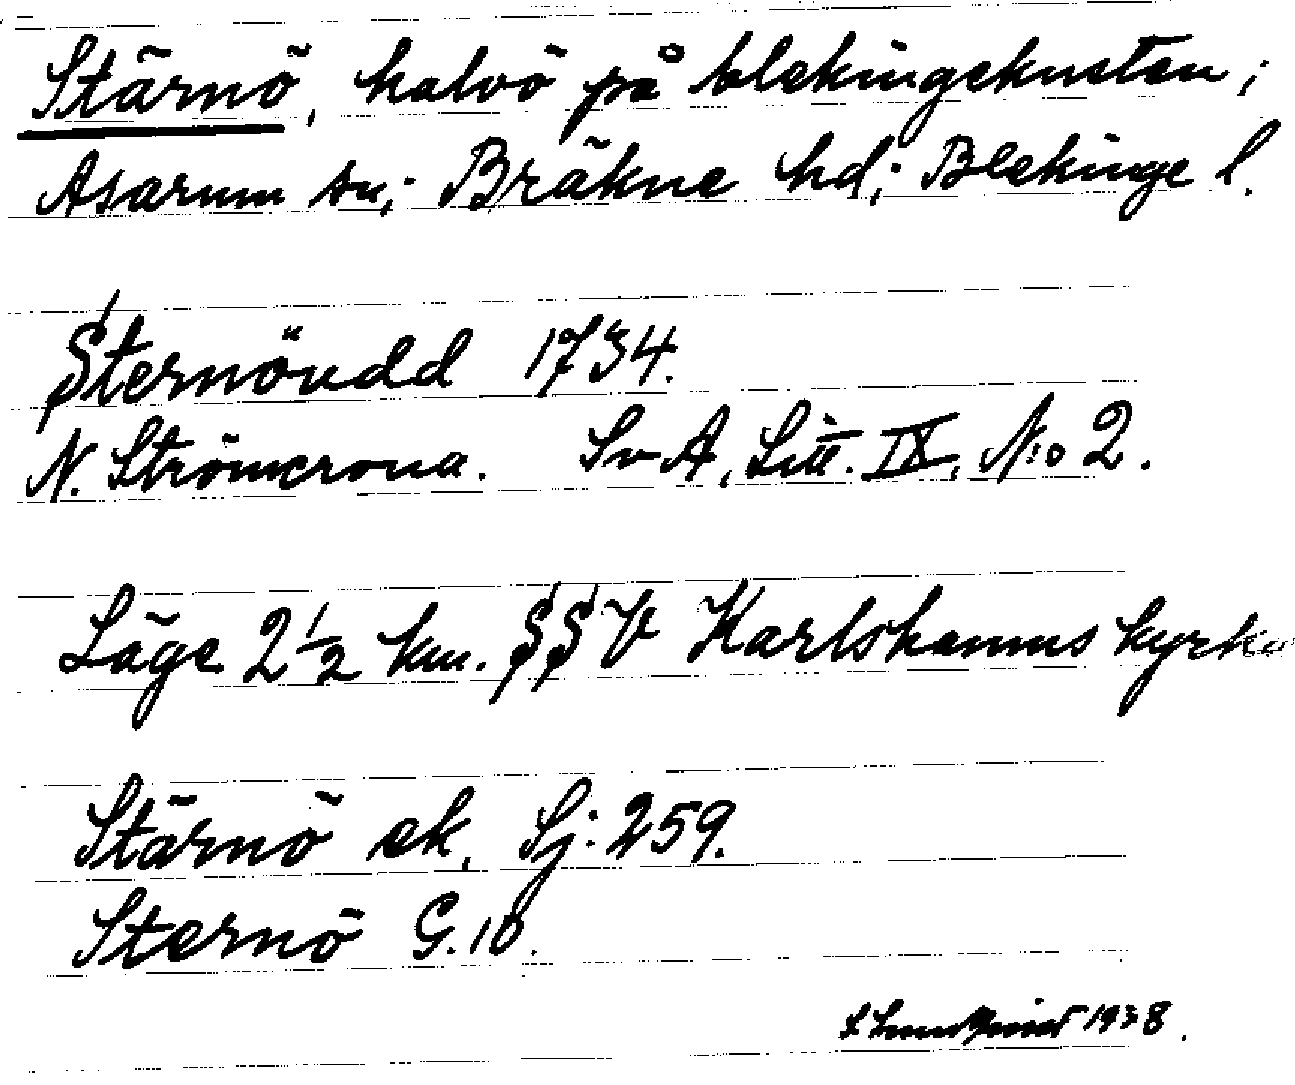 Stärnö, halvö på blekingekusten;
Asarum sn; Bräkne hd; Blekinge l.
Sternöudd 1734.
N. Strömcrona. SvA, Litt. IX, N:o 2.
Läge 2 1/2 km. SSV Karlshamns kyrka
Stärnö ek. Sj: 259.
Sternö G. 10.
1938.